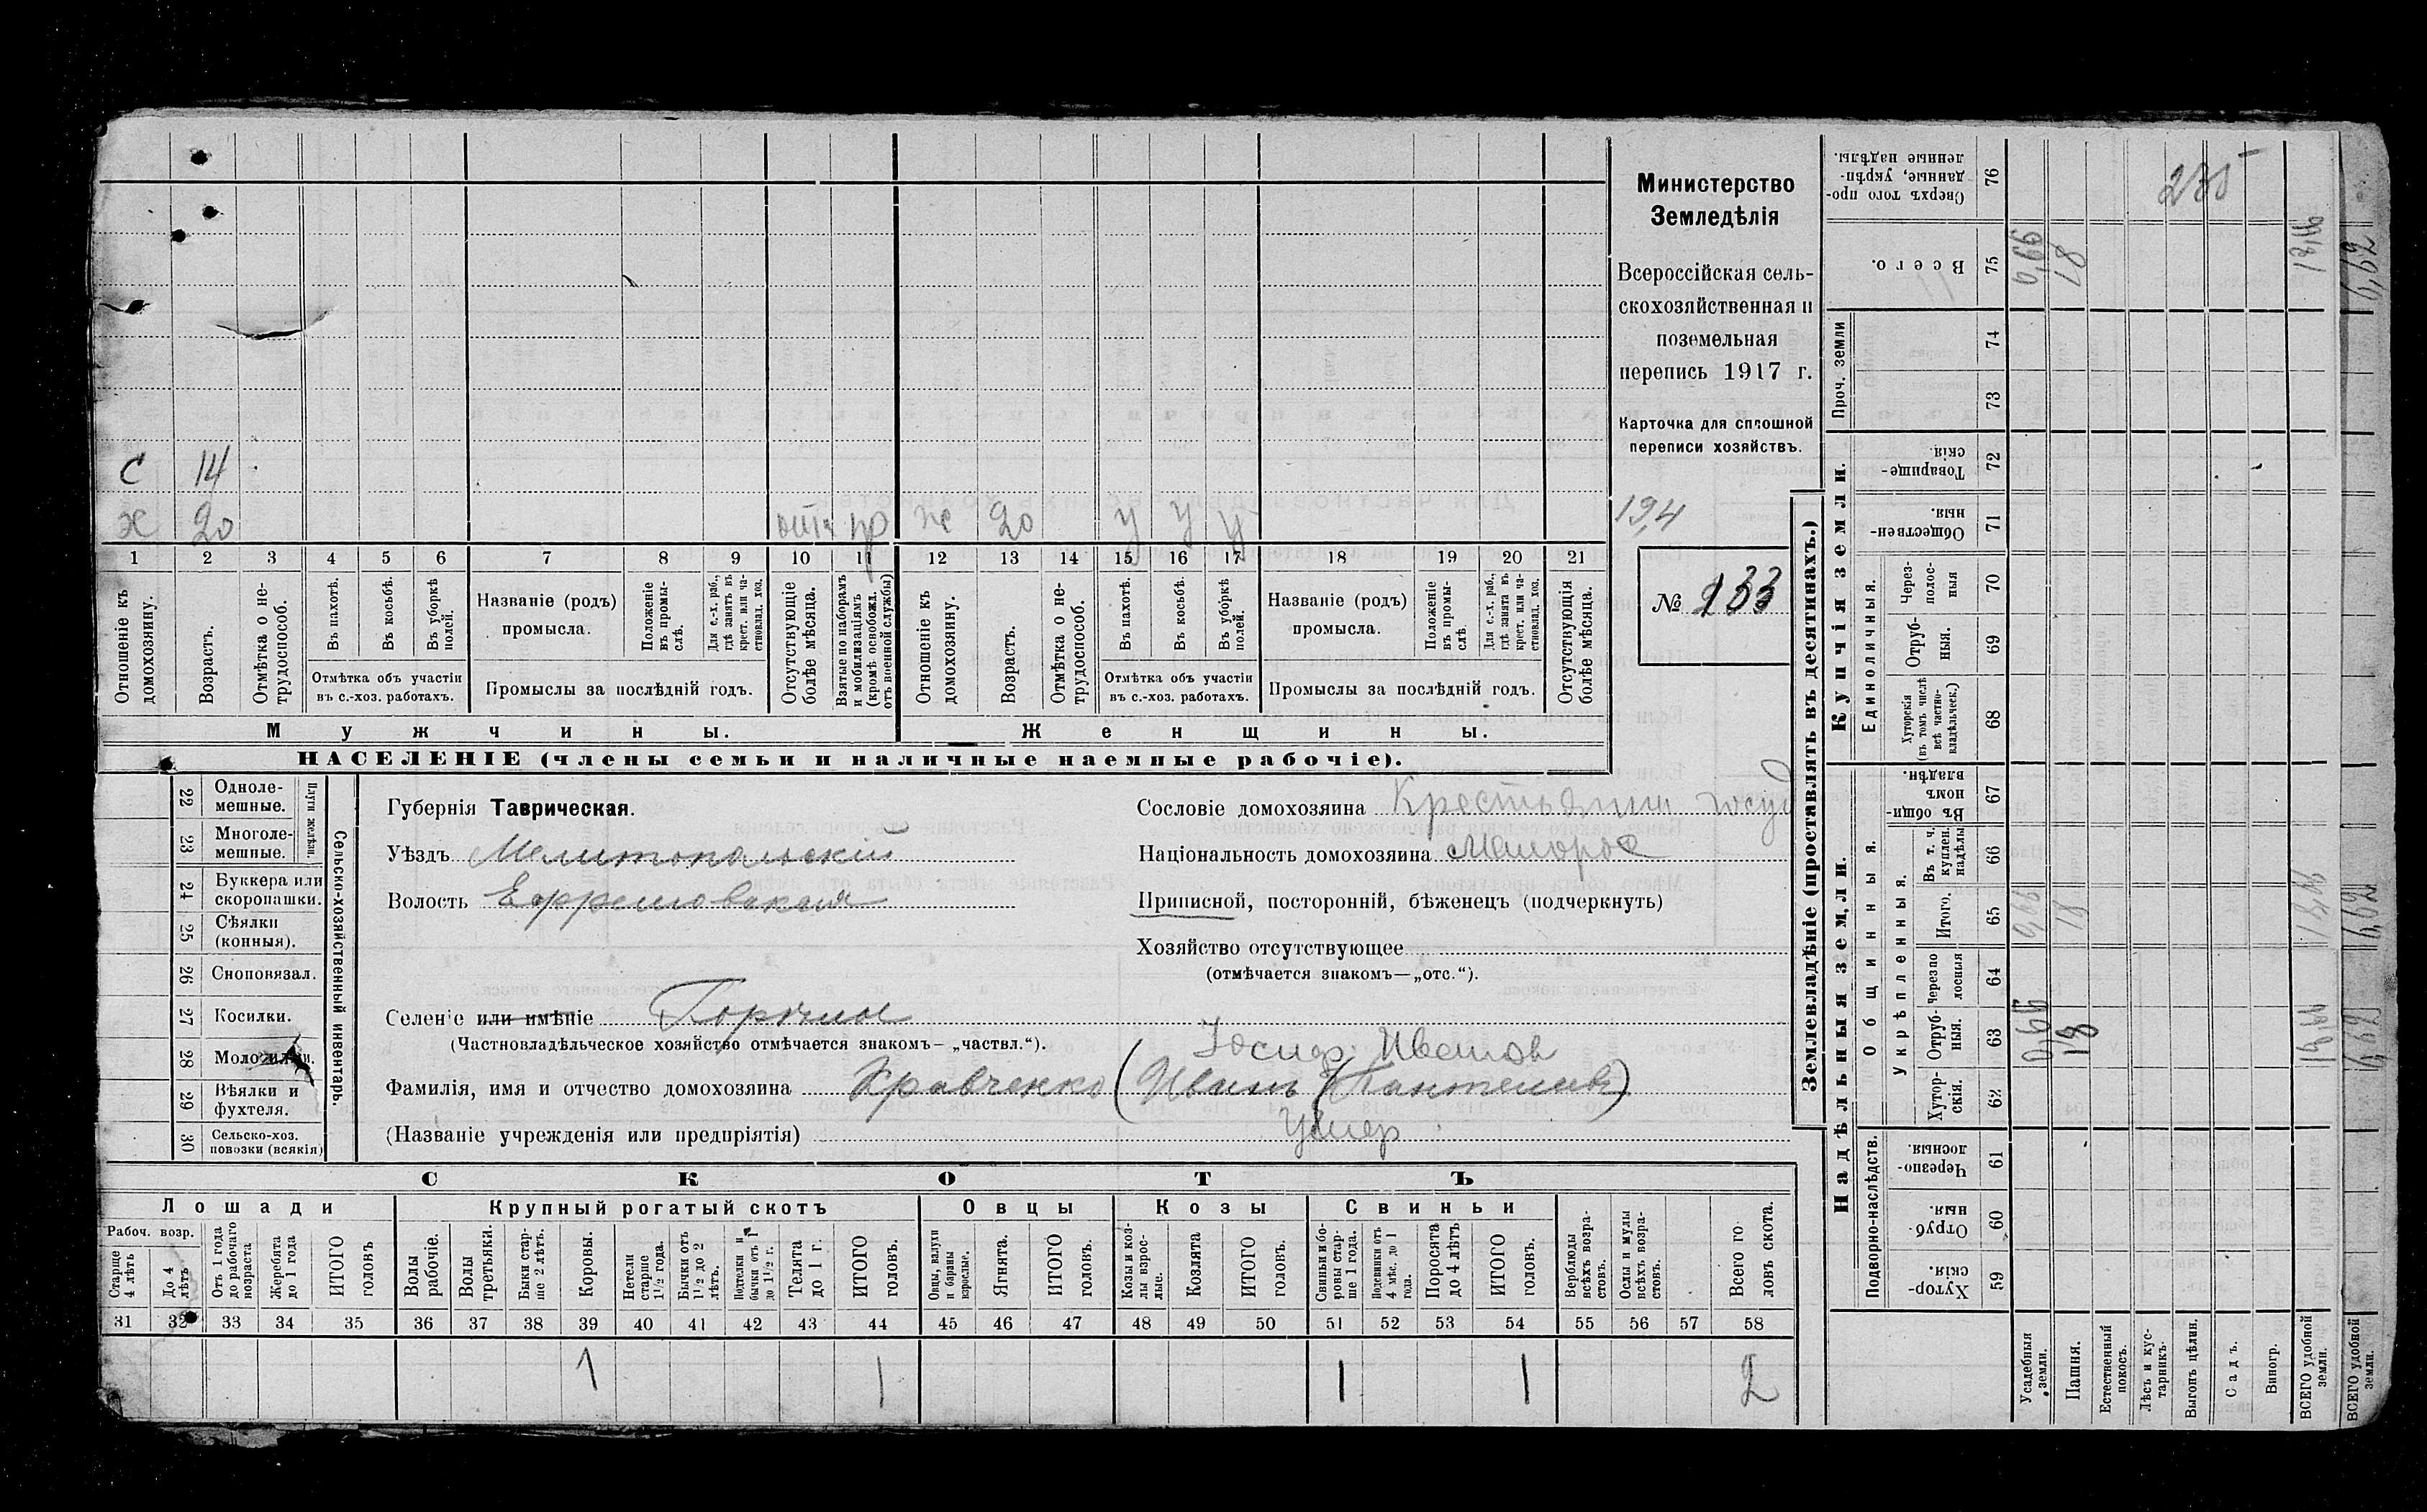 С 14
ж 20 отс пр ж 20 у у у
1 2 3 4 5 6 7 8 9 10 11 12 13 14 15 16 17 18 19 20 21
Отношеніе къ домохозяину.
Возрастъ.
Отмѣтка о не-
трудоспособ.
Въ пахотѣ.
Въ косьбѣ.
Въ уборкѣ полей.
Отмѣтка объ участіи
въ с.-хоз. работахъ.
Названіе (родъ)
промысла.
Положеніе въ промы-
слѣ.
Для с.-х. раб.,
гдѣ занятъ въ
крест. или ча-
стновлад. хоз.
Промыслы за послѣдній годъ.
Отсутствующіе
болѣе мѣсяца.
Взятые по наборамъ
и мобилизаціямъ
(кромѣ освобожд.
отъ военной службы)
Отношеніе къ
домохозяину.
Возрастъ.
Отмѣтка о не-
трудоспособ.
Въ пахотѣ.
Въ косьбѣ.
Въ уборкѣ полей.
Отмѣтка объ участіи
въ с.-хоз. работахъ.
Названіе (родъ)
промысла.
Положеніе
въ промы-
слѣ
Для с.-х. раб.,
гдѣ занята въ
крест. или ча-
стновлад. хоз.
Промыслы за послѣдній годъ.
Отсутствующія
болѣе мѣсяца.
Мужчины.
Женщины.
НАСЕЛЕНІЕ (члены семьи и наличные наемные рабочіе).
Министерство
Земледѣлія
Всероссійская сель-
скохозяйственная и
поземельная
перепись 1917 г.
Карточка для сплошной
переписи хозяйствъ.
194
№ 133
22 Одноле-
мешные.
23 Многоле-
мешные.
Плуги желѣзн.
24 Буккера или
скоропашки.
25 Сѣялки
(конныя).
26 Сноповязал.
27 Косилки.
28 Молотилки.
29 Вѣялки и
фухтеля.
30 Сельско-хоз.
повозки (всякія)
Сельско-хозяйственный инвентарь.
Губернія Таврическая.
Уѣздъ Мелитопольскій
Волость Ефремовская
Селеніе или имѣніе
(Частновладѣльческое хозяйство отмѣчается знакомъ— „частвл.“).
Іосиф Иванов
Фамилія, имя и отчество домохозяина Кравченко (Иванъ Пантелеев)
(Названіе учрежденія или предпріятія) Умер
Сословіе домохозяина Крестьянин госуд
Національность домохозяина Малорос
Приписной, посторонній, бѣженецъ (подчеркнуть)
Хозяйство отсутствующее
(отмѣчается знакомъ—„отс.“).
СКОТЪ
Лошади
Крупный рогатый скотъ
Овцы
Козы
Свиньи
Рабоч. возр.
Старше
4 лѣтъ
До 4
лѣтъ
Отъ 1 года
до рабочаго
возраста
Жеребята
до 1 года
ИТОГО
головъ
Волы
рабочіе.
Волы
третьяки.
Быки стар-
ше 2 лѣтъ.
Коровы.
Нетели
старше
1½ года.
Бычки отъ
1½ до 2
лѣтъ.
Подтелки и
бычки отъ 1
до 1½ г.
Телята
до 1 г.
ИТОГО
головъ.
Овцы, валухи
и бараны
взрослые.
Ягнята.
ИТОГО
головъ.
Козы и коз-
лы взрос-
лые.
Козлята
ИТОГО
головъ.
Свиньи и бо-
ровы стар-
ше 1 года.
Подсвинки отъ
4 мѣс. до 1
года.
Поросята
до 4 лѣтъ
ИТОГО
головъ.
Верблюды
всѣхъ возра-
стовъ.
Ослы и мулы
всѣхъ возра-
стовъ.
Всего го
ловъ скота.
31 32 33 34 35 36 37 38 39 40 41 42 43 44 45 46 47 48 49 50 51 52 53 54 55 56 57 58
1 1 1 1 2
Землевладѣніе (проставлять въ десятинахъ.)
Надѣльныя земли.
Купчія земли.
Проч. земли
Подворно-наслѣдств.
Общинныя.
Укрѣпленныя.
Единоличныя.
Сверхъ того про-
данные, укрѣп-
ленные надѣлы.
76
235
Всего.
75
74
73
Товарище-
скія
72
Обществен-
ныя.
71
Через-
полос-
ныя
70
Отруб-
ныя.
69
Хуторскія
(въ томъ числѣ
всѣ частно-
владѣльческ.)
68
Въ общи-
номъ
владѣн.
67
Въ т. ч.
куплен.
надѣлы
66
Итого.
65
18
Черезпо
лосныя
64
Отруб-
ныя.
63
18
Хутор-
скія.
62
Черезпо-
лосныя
61
Отруб-
ныя.
60
Хутор-
скія.
59
Усадебныя
земли.
Пашня.
Естественный
покосъ.
Лѣсъ и кус-
тарникъ.
Выгонъ цѣлин.
Садъ.
Виногр.
ВСЕГО удобной
земли.
ВСЕГО удобной
земли.